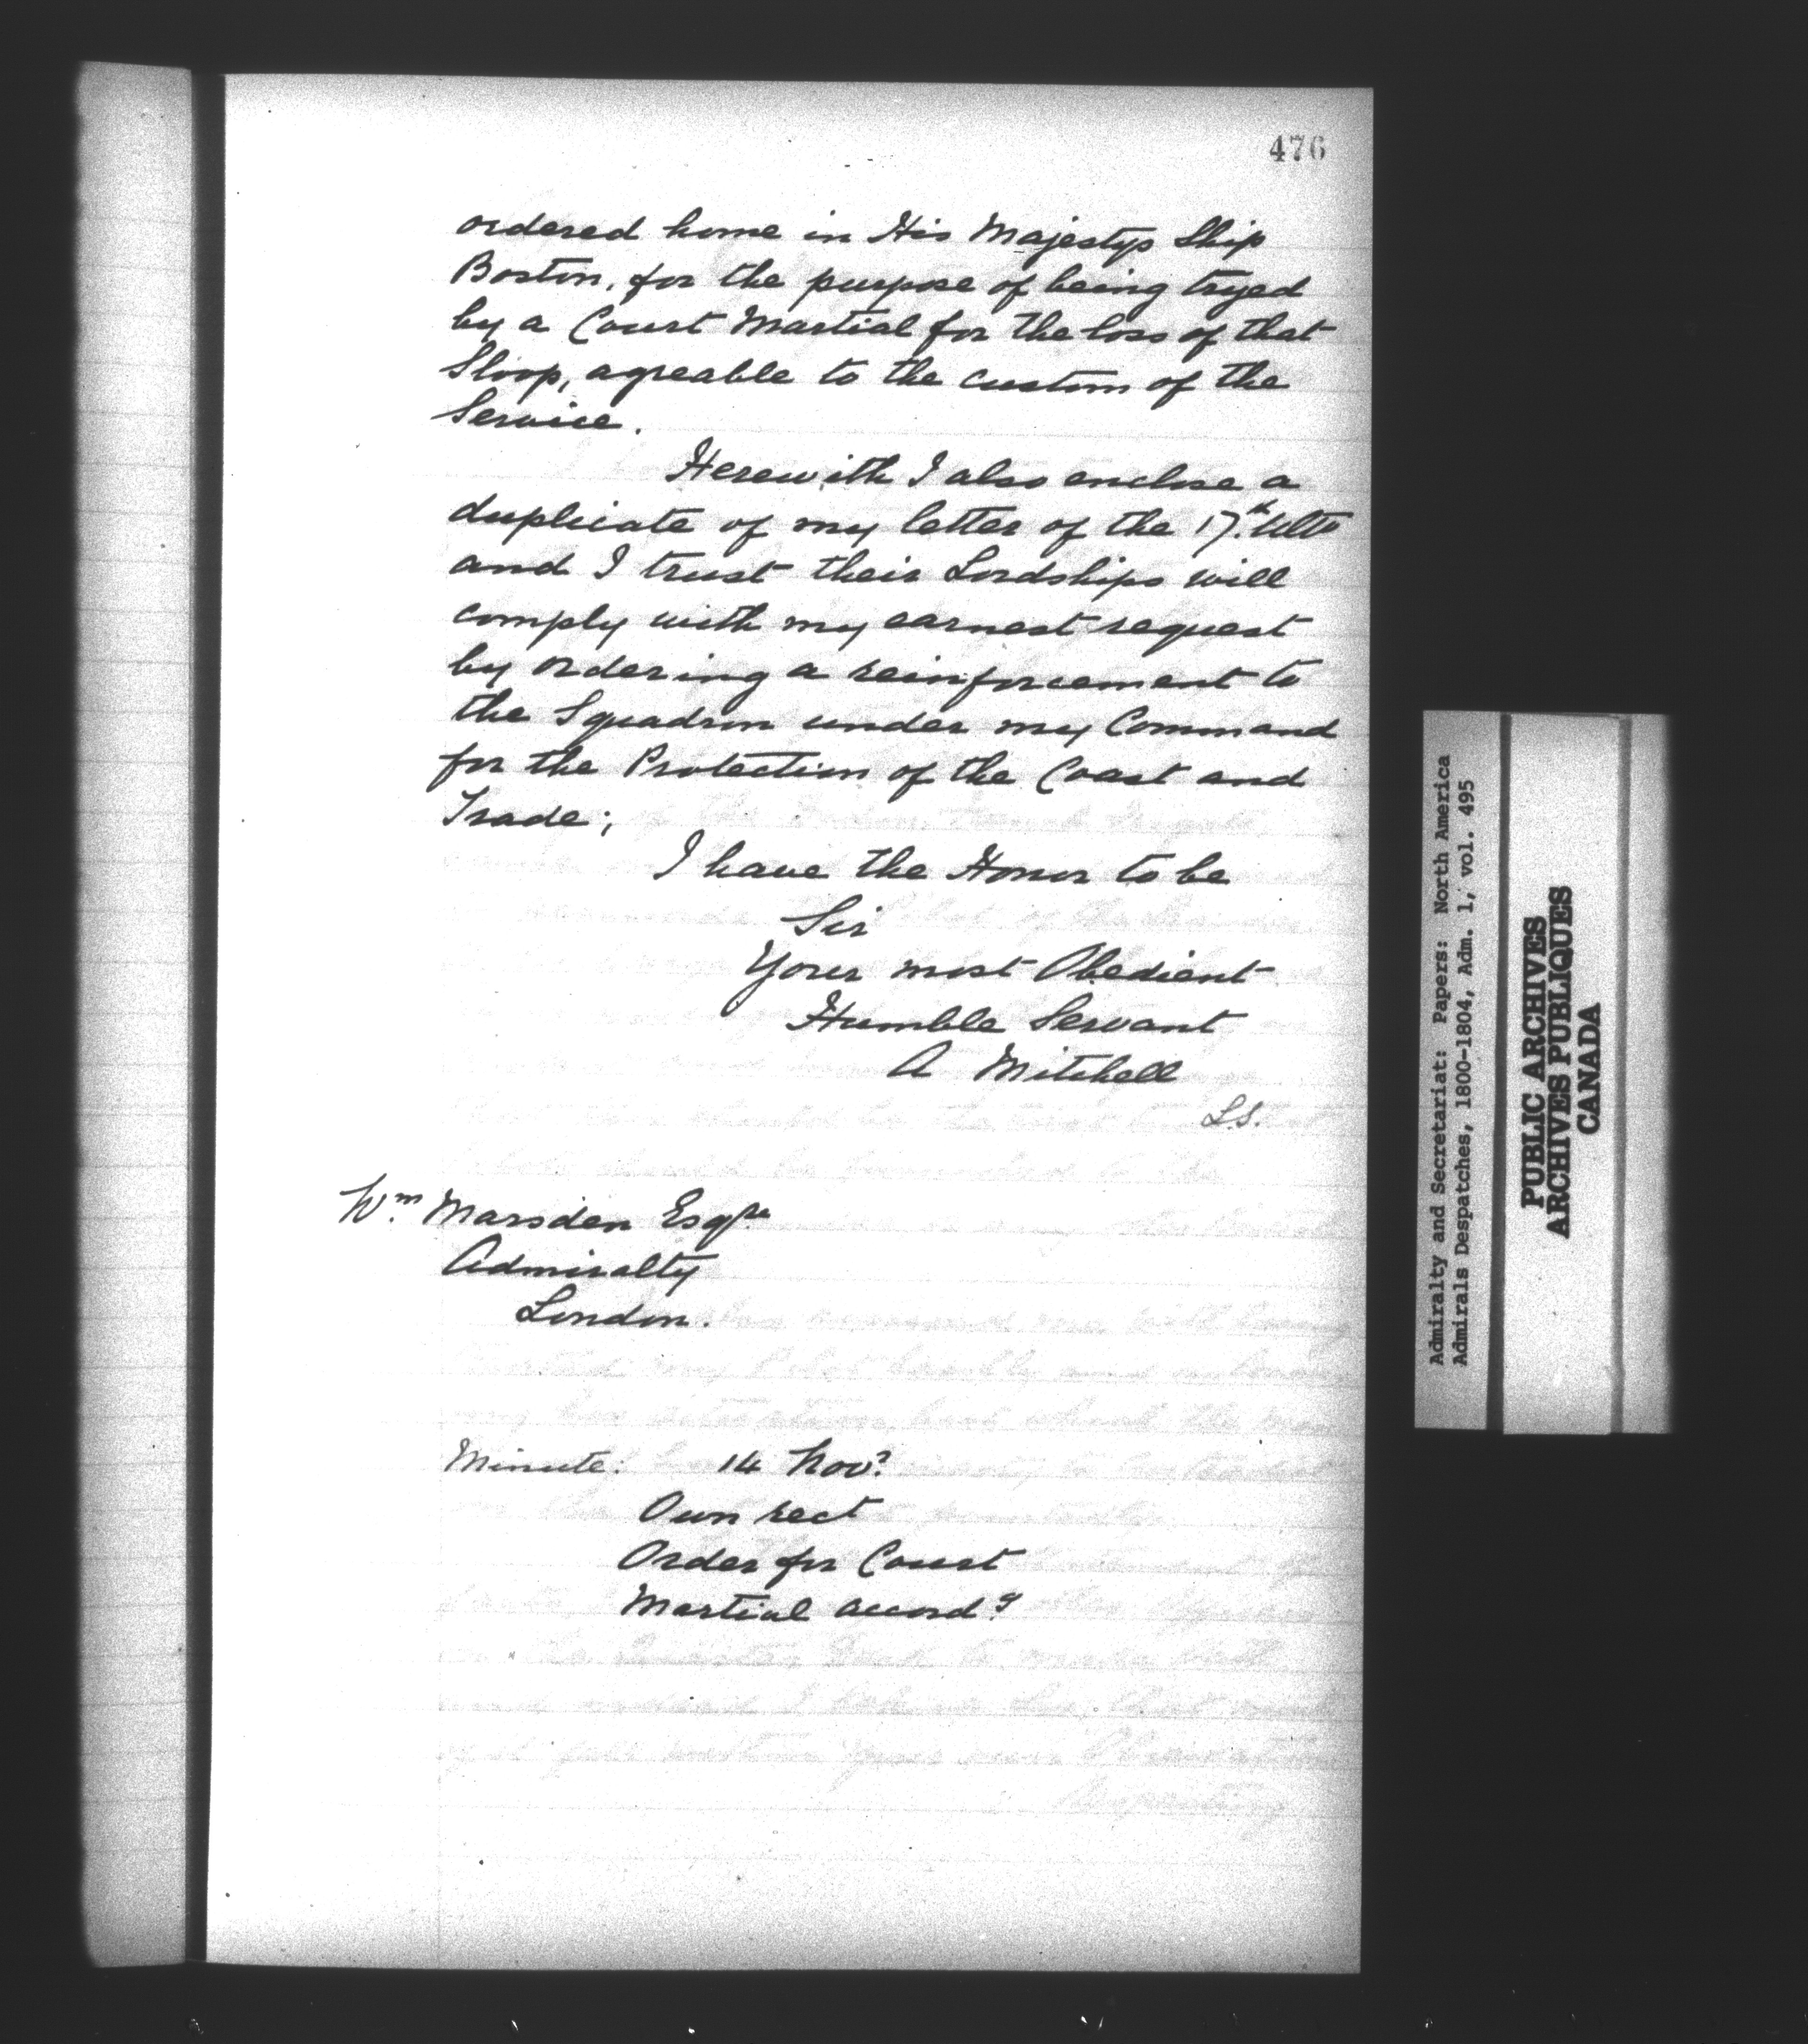 476
ordered home in His Majestys Ship
Boston, for the purpose of being tryed
by a Court Martial for the loss of that
Sloop, agreable to the custom of the
Service.
Herewith I also enclose a
duplicate of my letter of the 17th Ulto
and I trust their Lordships will
comply with my earnest request
by ordering a reinforcement to
the Squadron under my Command
for the Protection of the Coast and
Trade;
I have the Honor to be
Sir
Your most Obedient
Humble Servant
A Mitchell
L.S.
Wm. Marsden Esqre
Admiralty
London.
Minute: 14 Novr.
Own rect
Order for Court
Martial accordg
Admiralty and Secretariat: Papers: North America
Admirals Despatches, 1800-1804, Adm. 1, vol. 495
PUBLIC ARCHIVES
ARCHIVES PUBLIQUES
CANADA